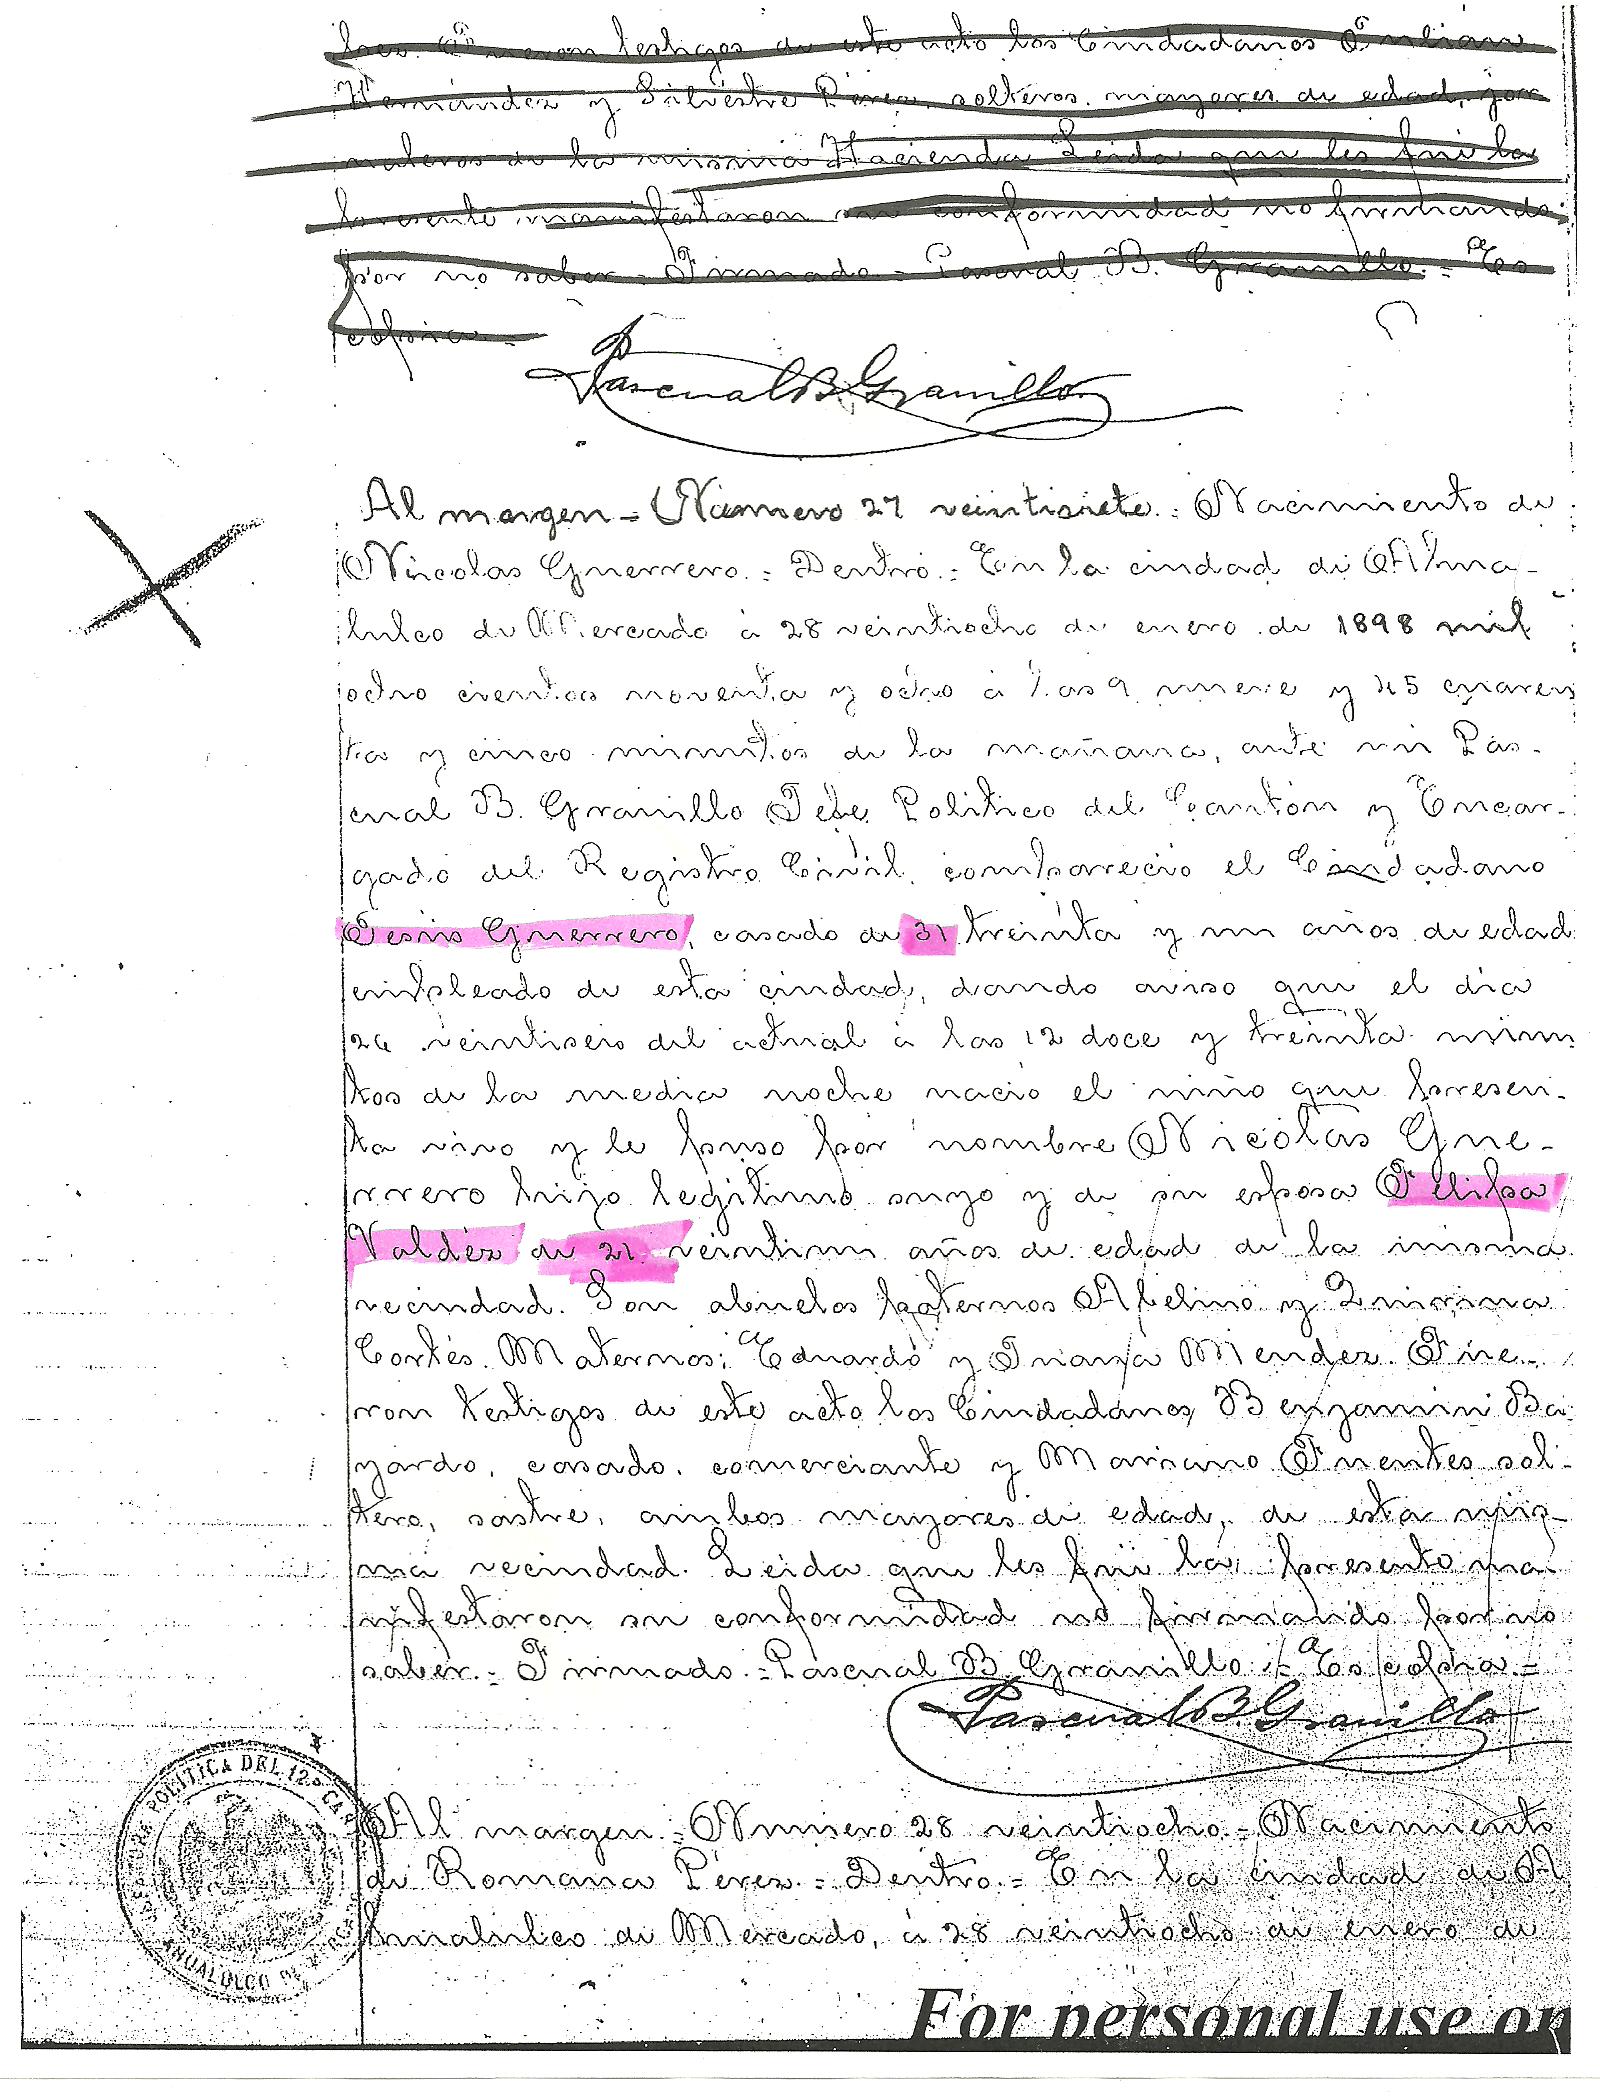 tres. Fueron testigos de este acto los Ciudadanos Julian
Hernández y Silvestre Pérez, solteros. mayores de edad, jor
naleros de la misma Hacienda Leida que les fué la
presente manifestaron su conformidad no firmando
por no saber = Firmado = Pascual B. Granillo. = Es
copia. =
Pascual B Granillo
Al margen = Número 27 veintisiete. = Nacimiento de
Nicolas Guerrero. = Dentro. = En la ciudad de Ahua-
lulco de Mercado á 28 veintiocho de enero de 1898 mil
ocho cientos noventa y ocho á las 9 nueve y 45 cuaren
ta y cinco minutos de la mañana, ante mi Pas-
cual B. Granillo Jefe Politico del Cantón y Encar-
gado del Registro Civil, compareció el Ciudadano
Jesus Guerrero, casado de 31 treinta y un años de edad
empleado de esta ciudad, dando aviso que el dia
26 veintiseis del actual á las 12 doce y treinta minu
tos de la media noche nació el niño que presen-
ta vivo y le puso por nombre Nicolas Gue-
rrero hijo legitimo suyo y de su esposa Felipa
Valdéz de 21 veintiun años de edad de la misma
vecindad. Son abuelos paternos Abelino y Quirina
Cortés. Maternos: Eduardo y Juana Mendez. Fue-
ron testigos de este acto los Ciudadanos Benjamin Ba
yardo, casado, comerciante y Mariano Fuentes sol-
tero, sastre, ambos mayores de edad, de esta mis-
ma vecindad. Leida que les fué la presente ma-
nifestaron su conformidad no firmando por no
saber. = Firmado. = Pascual B. Granillo. = Es copia. =
Pascual B. Granillo
POLITICA DEL 12º CA
AHUALULCO DE
Al margen. = Número 28 veintiocho. = Nacimiento
de Romana Pérez. = Dentro. = En la ciudad de A
hualulco de Mercado, á 28 veintiocho de enero de
For personal use on